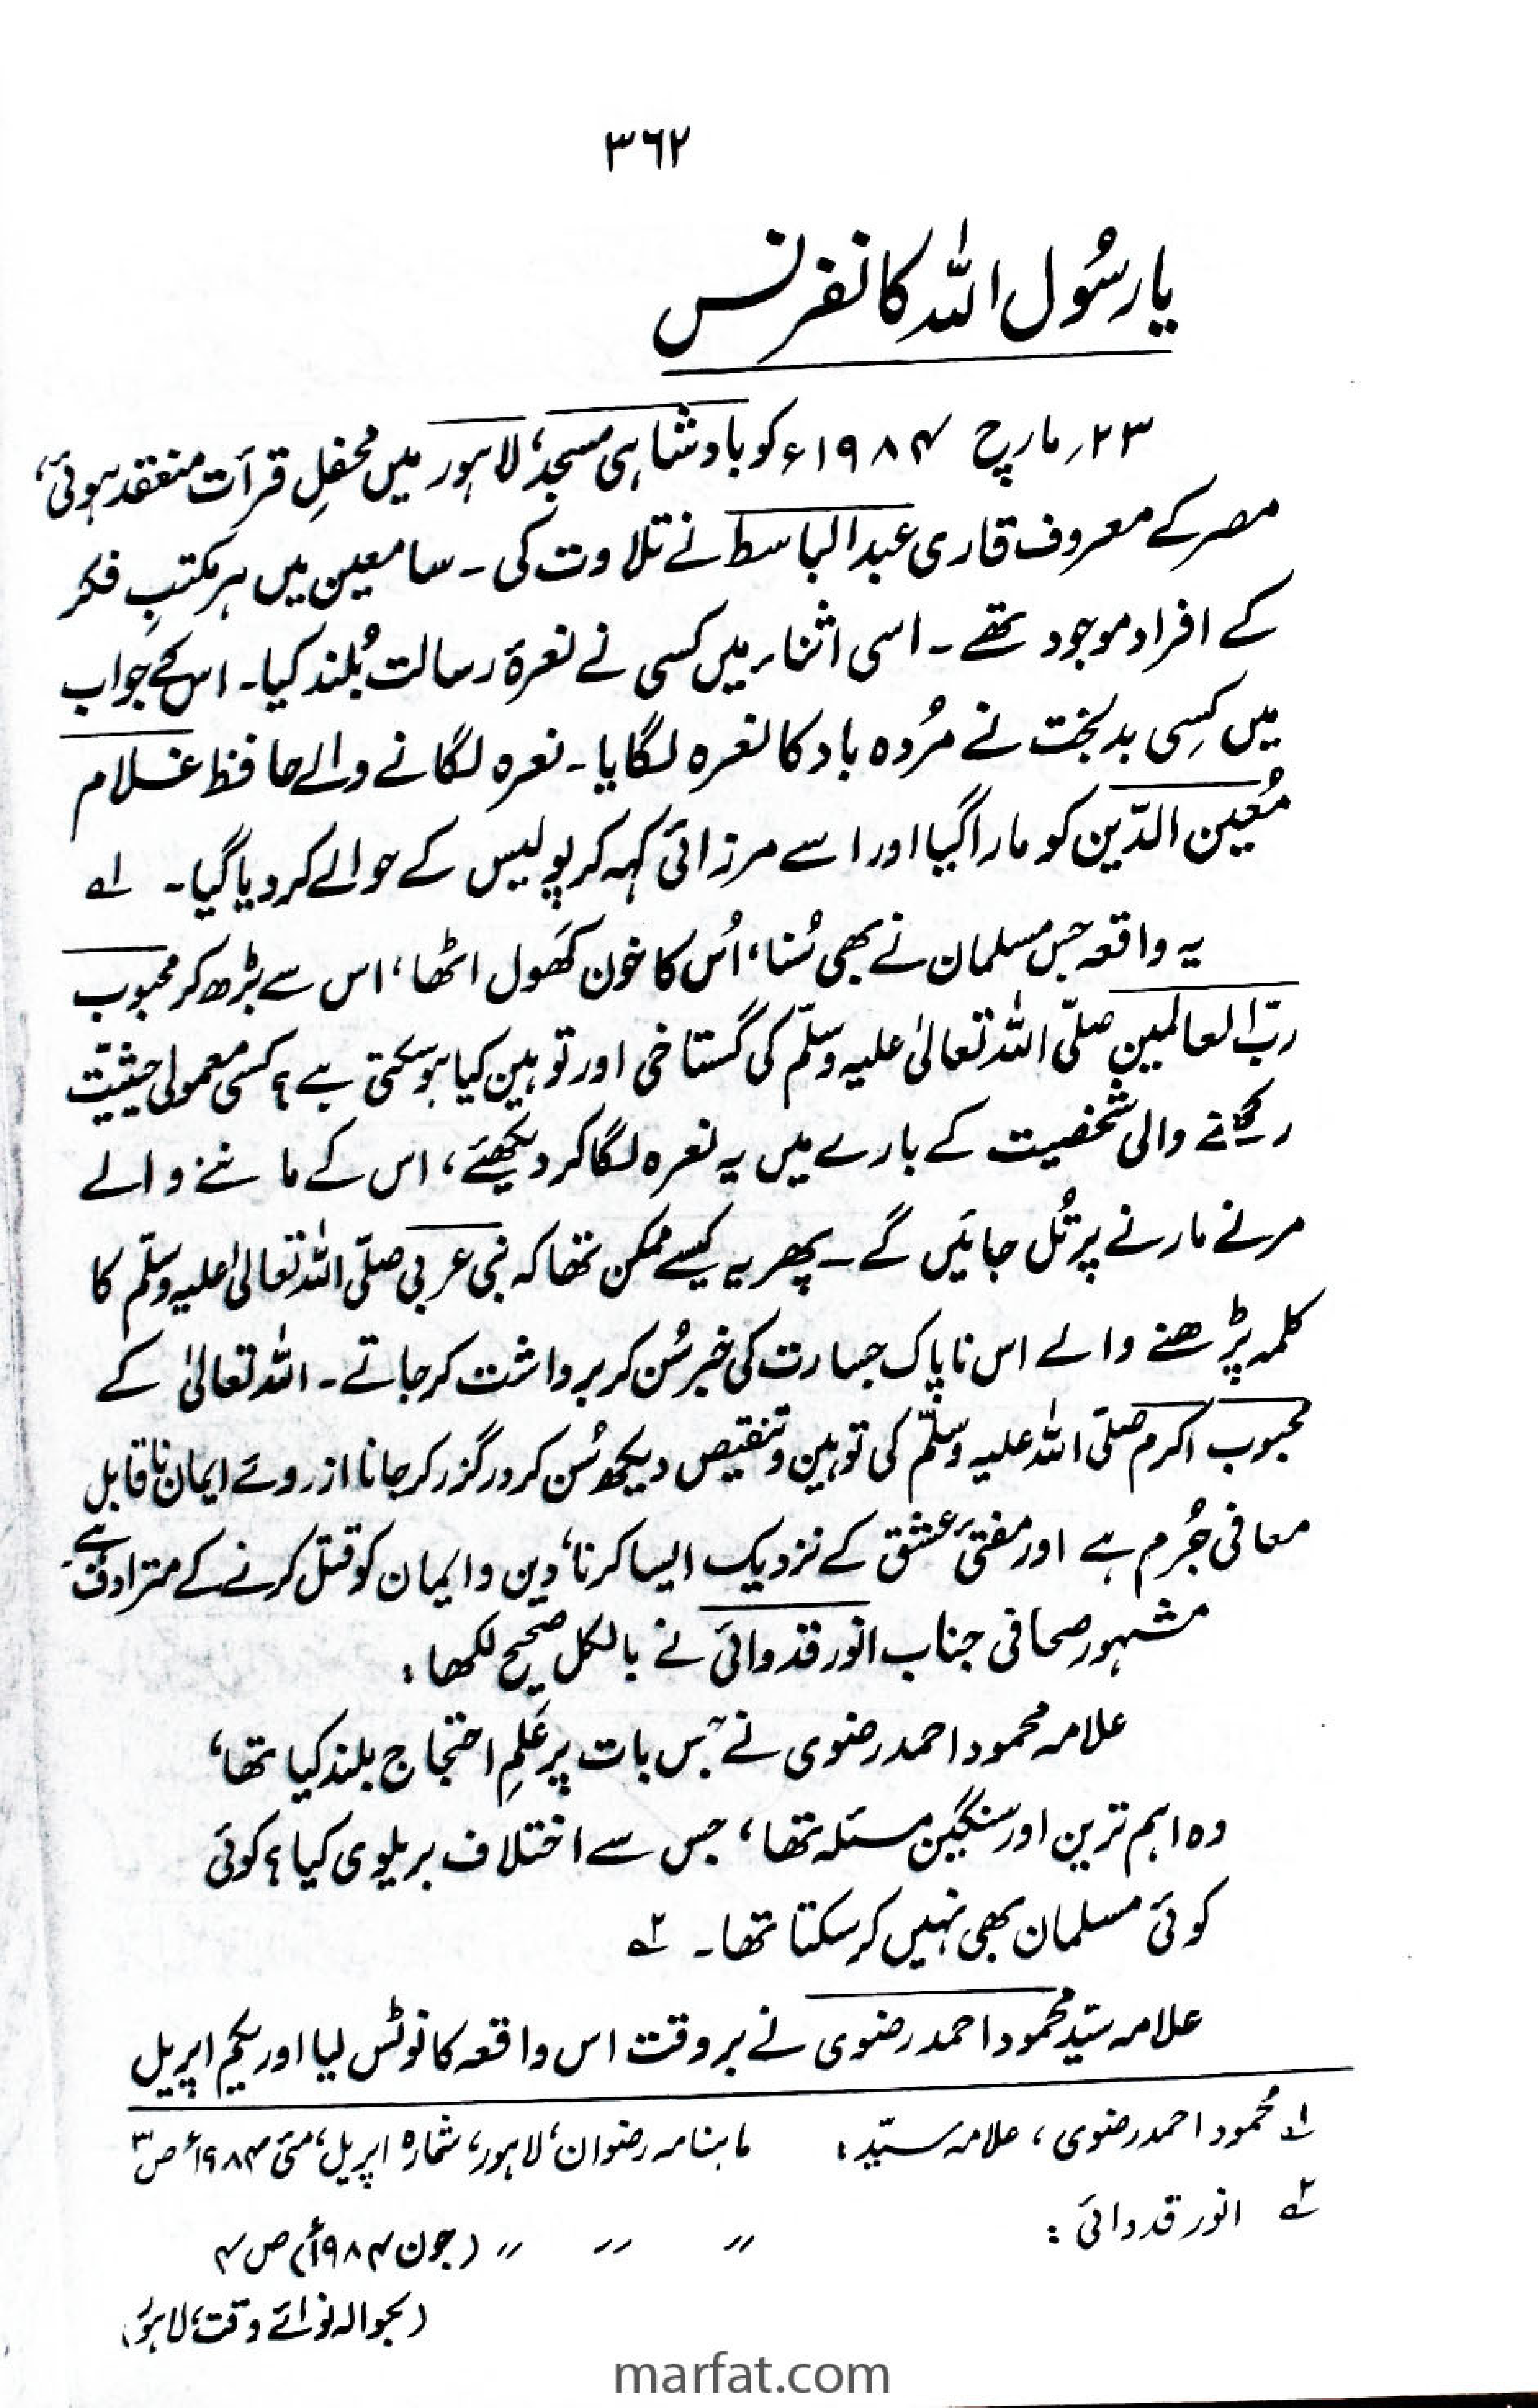 ۳۶۲
یا رسُول اللہ کانفرنس
۲۳؍ مارچ ۱۹۸۴ء کو بادشاہی مسجد، لاہور میں محفلِ قرأت منعقد ہوئی،
مصر کے معروف قاری عبدالباسط نے تلاوت کی۔ سامعین میں ہر مکتبِ فکر
کے افراد موجود تھے۔ اسی اثناء میں کسی نے نعرۂ رسالت بُلند کیا۔ اس کے جواب
میں کسِی بدبخت نے مُردہ باد کا نعرہ لگایا۔ نعرہ لگانے والے حافظ غلام
مُعین الدّین کو مارا گیا اور اسے مرزائی کہہ کر پولیس کے حوالے کر دیا گیا۔ ۱؎
یہ واقعہ جس مسلمان نے بھی سُنا، اُس کا خون کھَول اٹھا، اس سے بڑھ کر محبوب
ربّ العالمین صلّی اللہ تعالیٰ علیہ وسلّم کی گستاخی اور توہین کیا ہو سکتی ہے؟ کسی معمولی حیثیّت
رکھنے والی شخصیت کے بارے میں یہ نعرہ لگا کر دیکھئے، اس کے ماننے والے
مرنے مارنے پر تُل جائیں گے۔ پھر یہ کیسے ممکن تھا کہ نبی عربی صلّی اللہ تعالیٰ علیہ وسلّم کا
کلمہ پڑھنے والے اس ناپاک جسارت کی خبر سُن کر برداشت کر جاتے۔ اللہ تعالیٰ کے
محبوب اکرم صلّی اللہ علیہ وسلّم کی توہین و تنقیص دیکھ سُن کر درگزر کر جانا از روئے ایمان ناقابل
معافی جُرم ہے اور مفتیٔ عشق کے نزدیک ایسا کرنا، دین و ایمان کو قتل کرنے کے مترادف ہے۔
مشہور صحافی جناب انور قدوائی نے بالکل صحیح لکھا:
علامہ محمود احمد رضوی نے جس بات پر عَلمِ احتجاج بلند کیا تھا،
وہ اہم ترین اور سنگین مسئلہ تھا، جس سے اختلاف بریلوی کیا؟ کوئی
کوئی مسلمان بھی نہیں کر سکتا تھا۔ ۲؎
علامہ سیّد محمود احمد رضوی نے بروقت اس واقعہ کا نوٹس لیا اور یکم اپریل
۱؎ محمود احمد رضوی، علامہ سیّد: ماہنامہ رضوان، لاہور، شمارہ اپریل، مئی ۱۹۸۴ء ص ۳
۲؎ انور قدوائی: ״ ״ ״ (جون ۱۹۸۴ء) ص ۴
(بحوالہ نوائے وقت، لاہور)
marfat.com